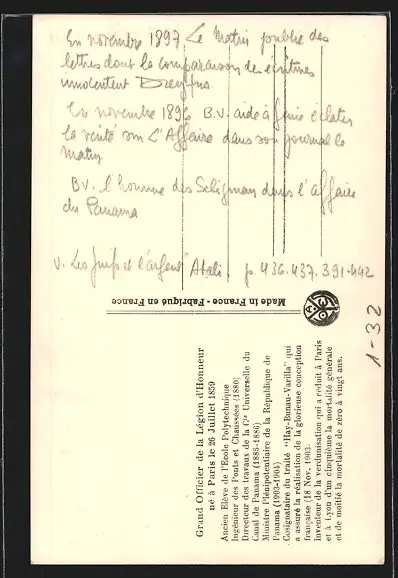 En novembre 1897 Le Matin publie des
lettres dont la comparaison des écritures
innocentent Dreyfus
En novembre 1896 B.V. aide à faire éclater
la vérité sur L'Affaire dans son journal le
Matin
B.V. l'homme des Seligman dans l'affaire
du Panama
v. Les Juifs et l'argent" Atali. p. 436.437.391.442
Made in France - Fabriqué en France
1-32
Grand Officier de la Légion d'Honneur
né à Paris le 26 Juillet 1859
Ancien Elève de l'Ecole Polytechnique
Ingénieur des Ponts et Chaussées (1880)
Directeur des travaux de la Cie Universelle du
Canal de Panama (1885-1886)
Ministre Plénipotentiaire de la République de
Panama (1903-1904)
Cosignataire du traité "Hay-Bunau-Varilla" qui
a assuré la réalisation de la glorieuse conception
française (18 Nov. 1903.
Inventeur de la verdunisation qui a réduit à Paris
et à Lyon d'un cinquième la mortalité générale
et de moitié la mortalité de zéro à vingt ans.